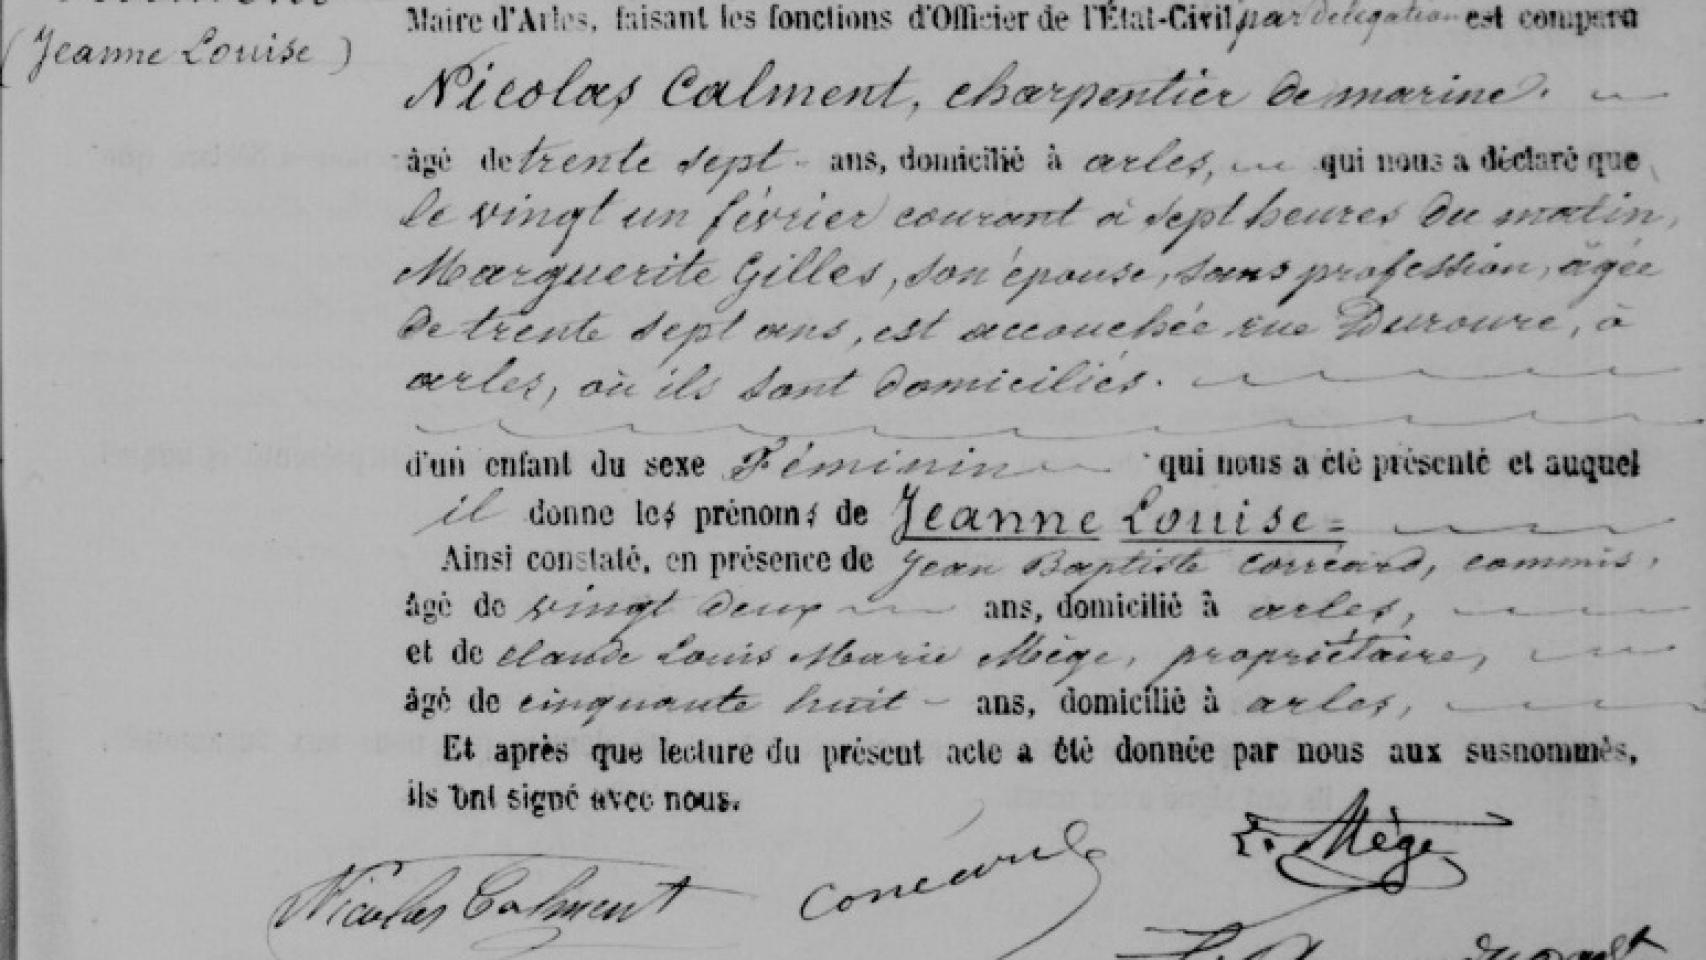 (Jeanne Louise)
Maire d'Arles, faisant les fonctions d'Officier de l'État-Civil par délégation est comparu
Nicolas Calment, charpentier de marine.
âgé de trente sept ans, domicilié à arles, qui nous a déclaré que
le vingt un février courant à sept heures du matin,
Marguerite Gilles, son épouse, sans profession, âgée
de trente sept ans, est accouchée rue Duroure, à
arles, où ils sont domiciliés.
d'un enfant du sexe Féminin qui nous a été présenté et auquel
il donne les prénoms de Jeanne Louise =
Ainsi constaté, en présence de Jean Baptiste Corréard, commis,
âgé de vingt deux ans, domicilié à arles,
et de Claude Louis Marie Mège, propriétaire,
âgé de cinquante huit - ans, domicilié à arles,
Et après que lecture du présent acte a été donnée par nous aux susnommés,
ils ont signé avec nous.
L. Mège
Nicolas Calment Corréard